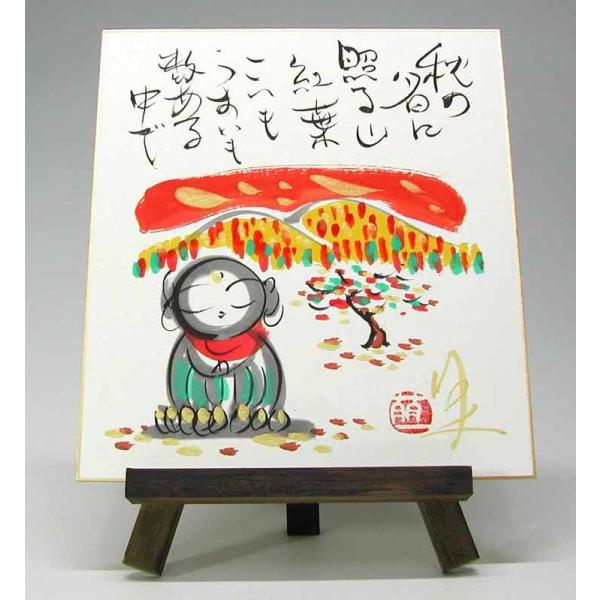 秋の
夕日に
照る山
紅葉
こいも
うすいも
数ある
中で